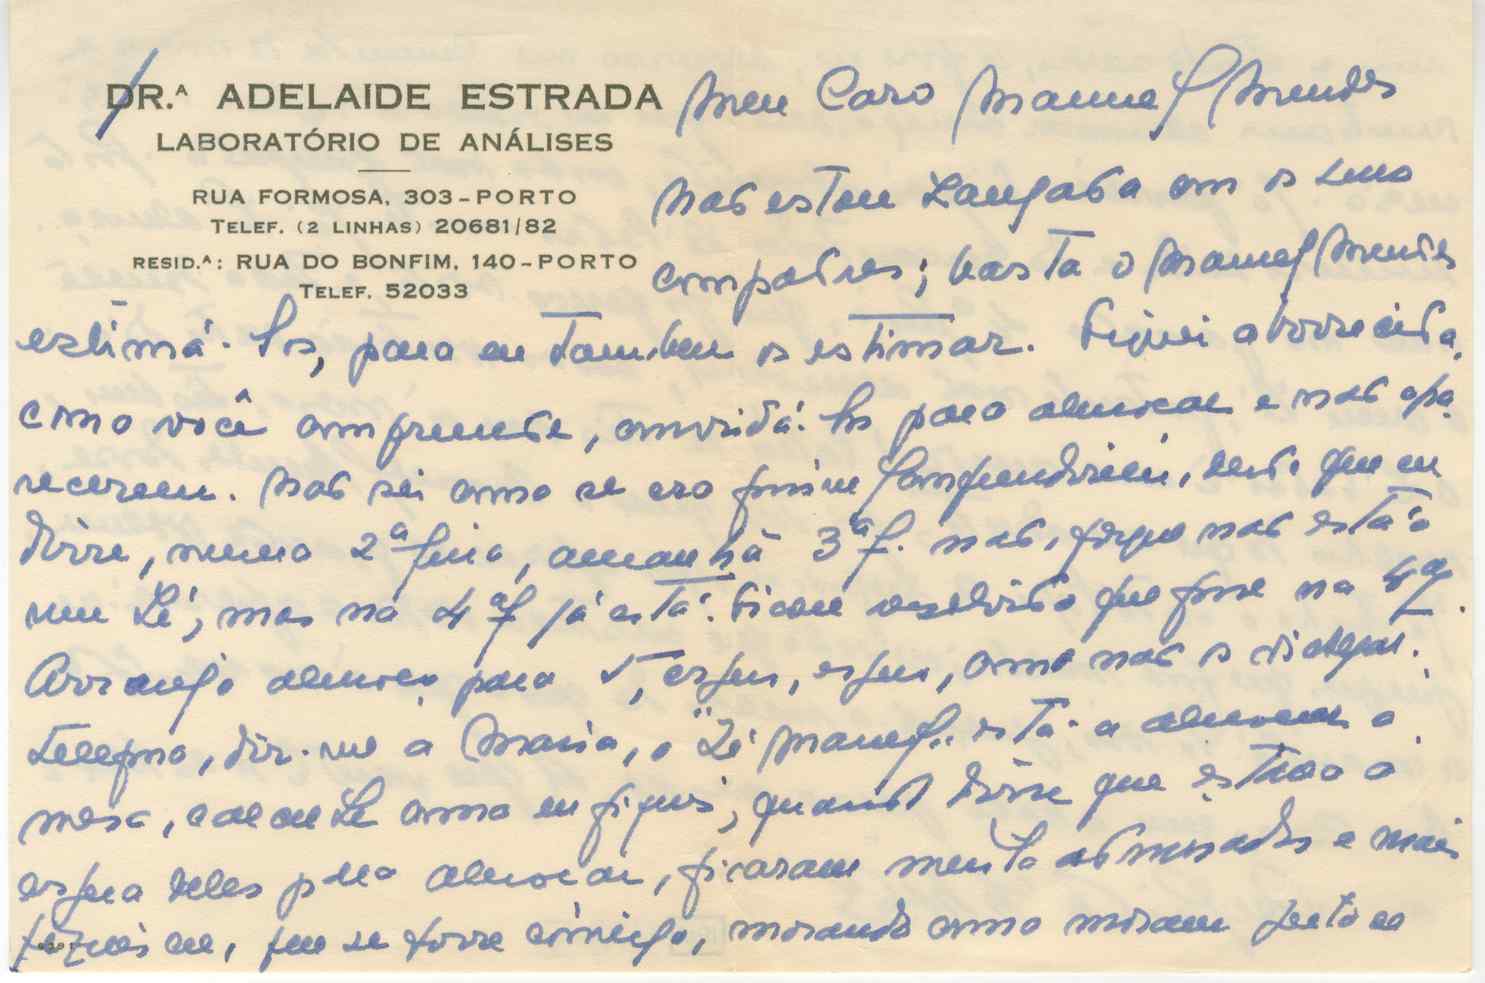 DR.ª ADELAIDE ESTRADA
LABORATÓRIO DE ANÁLISES
RUA FORMOSA, 303-PORTO
TELEF. (2 LINHAS) 20681/82
RESID.ª: RUA DO BONFIM, 140-PORTO
TELEF. 52033
Meu Caro Manuel Mendes
Não estou zangada com os seus
compadres; basta o Manuel Mendes
estimá-los, para eu também os estimar. Fiquei aborrecida,
como você compreende, convidá-los para almoçar e não apa-
recerem. Não sei como se era possível, desde que eu
disse, numa 2ª feira, amanhã 3ª f. não, porque não está o
meu Zé, mas na 4ª f já está. Ficou resolvido que fosse na 4ª f.
Arranjo almoço para 5, espero, espero, como não os vi chegar.
Telefono, diz-me a Maria, o "Zé Manel" está a almoçar à
mesa, calcule como eu fiquei, quando disse que estava à
espera deles para almoçar, ficaram muito admirados e mais
fiquei eu, que se fosse comigo, morando como moram perto de